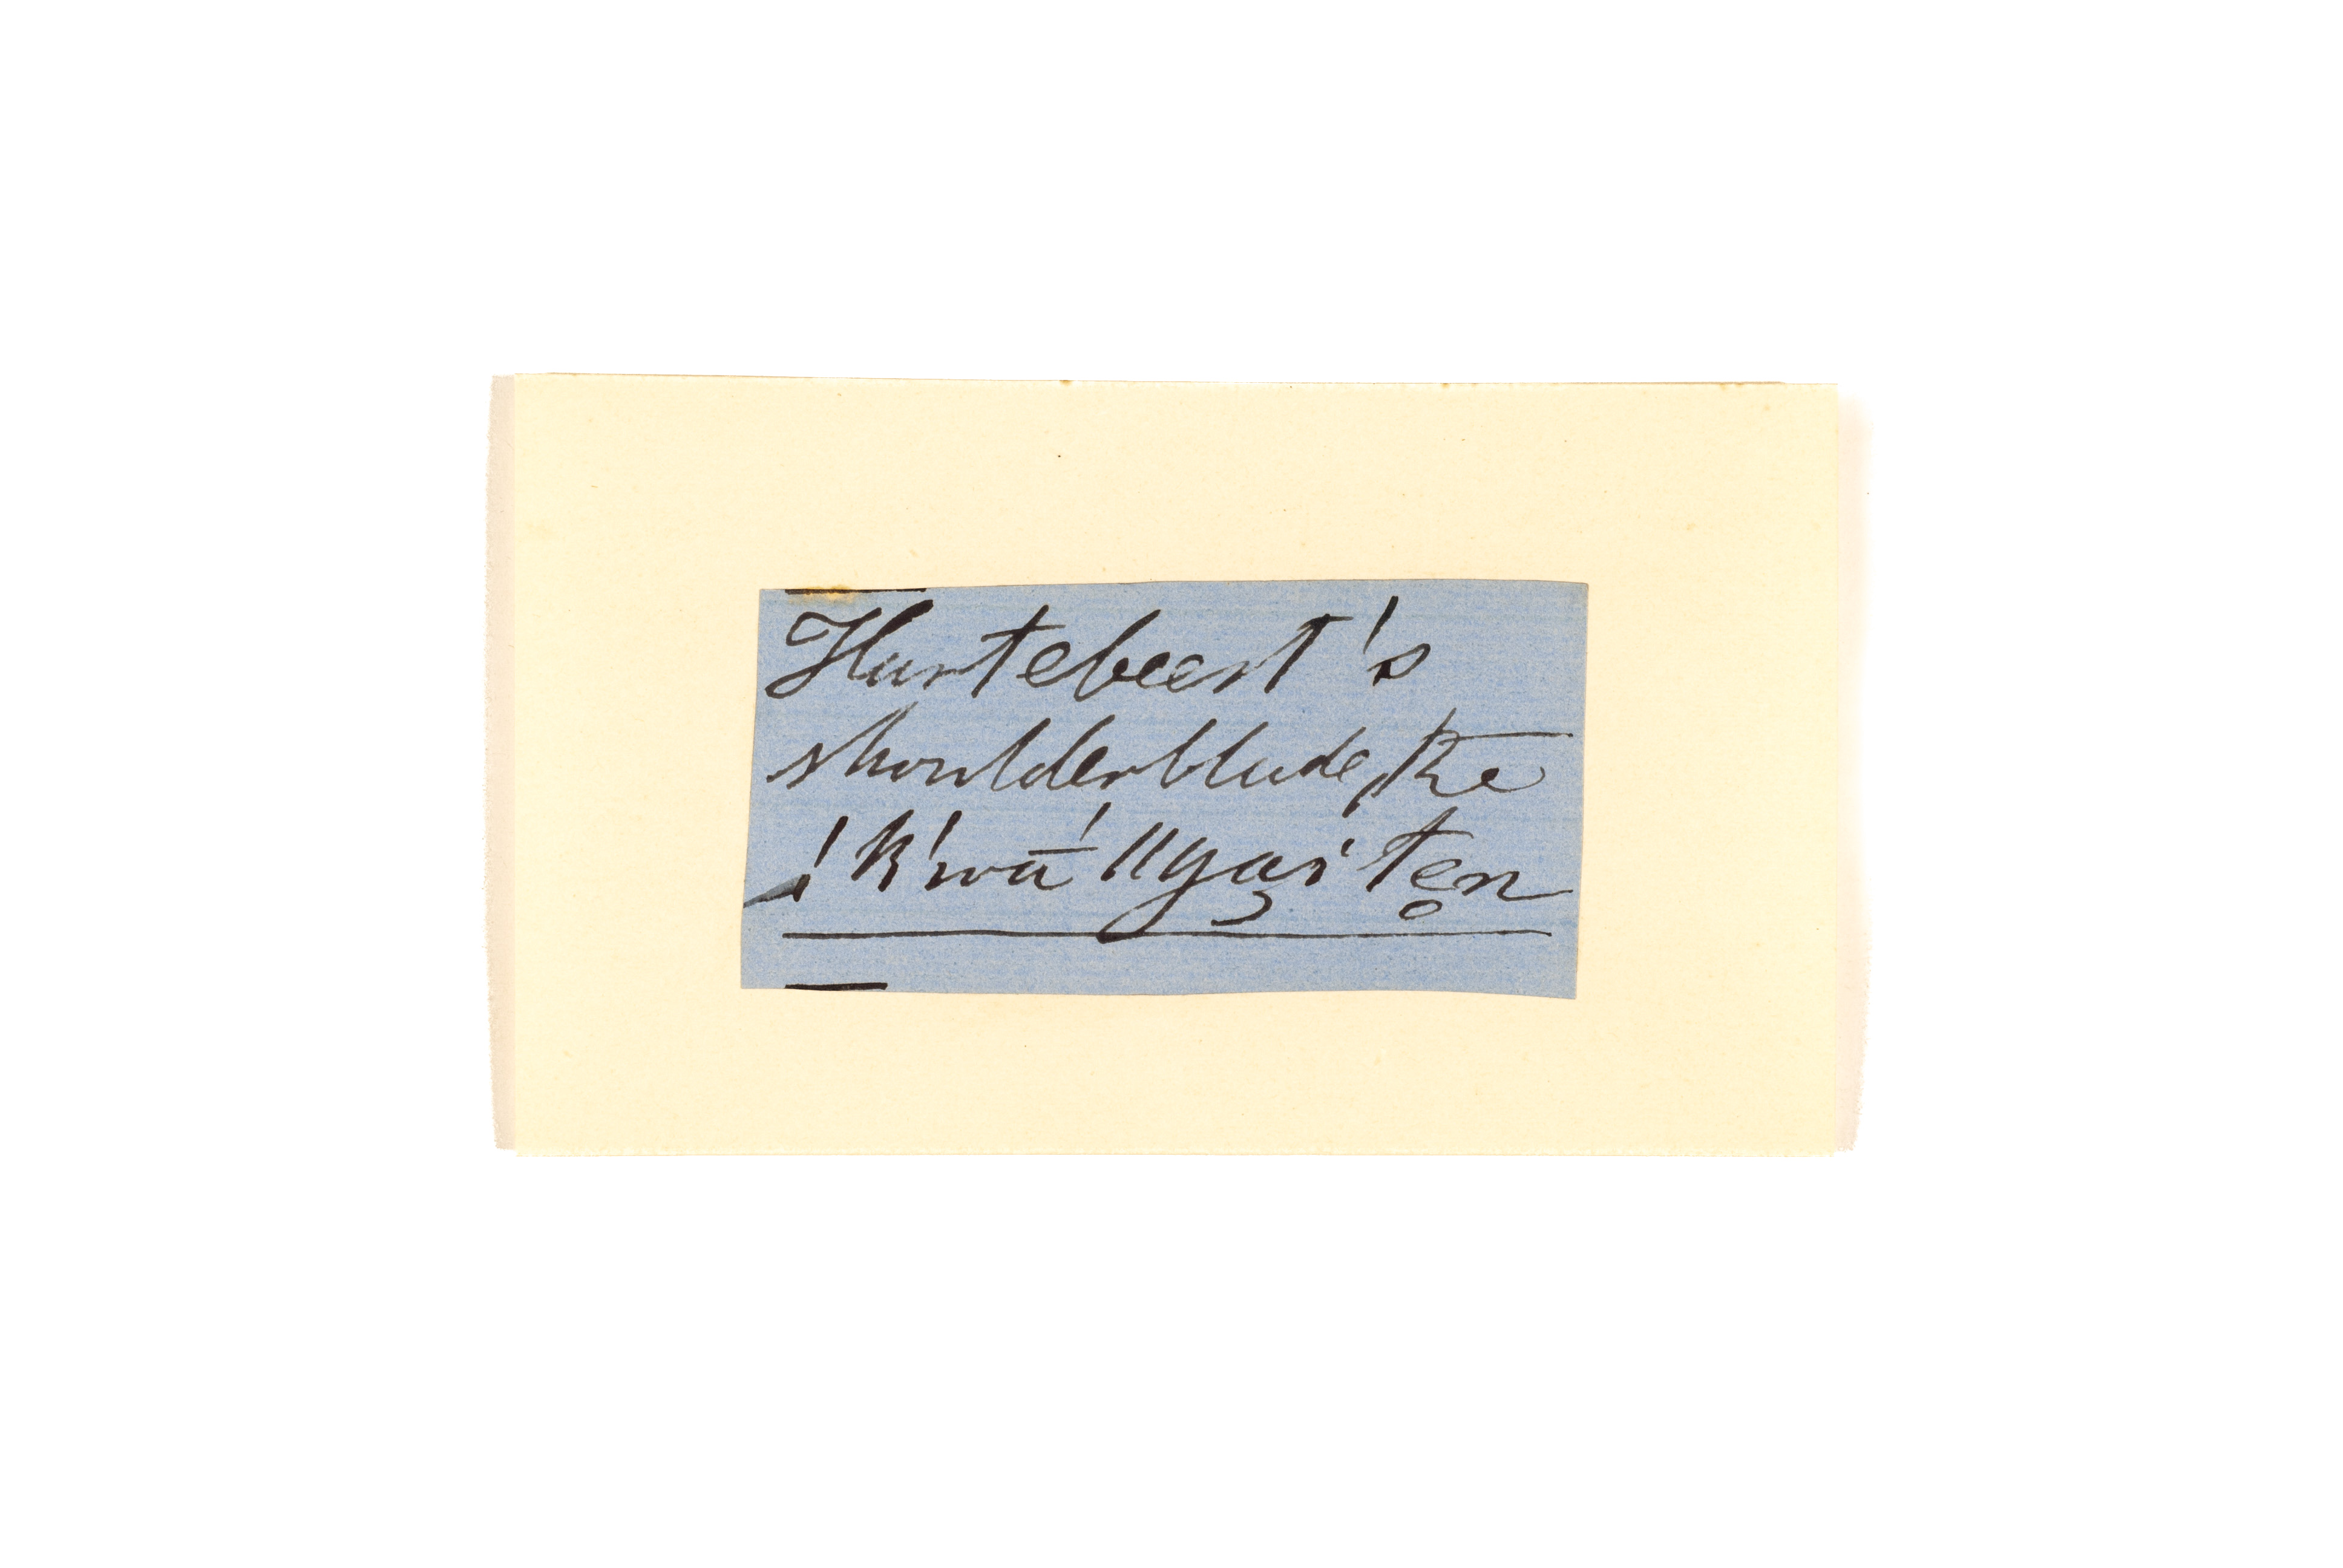 Hartebeest's
shoulderblade, ke
!k'wā́ ǁga̡i'te̥n